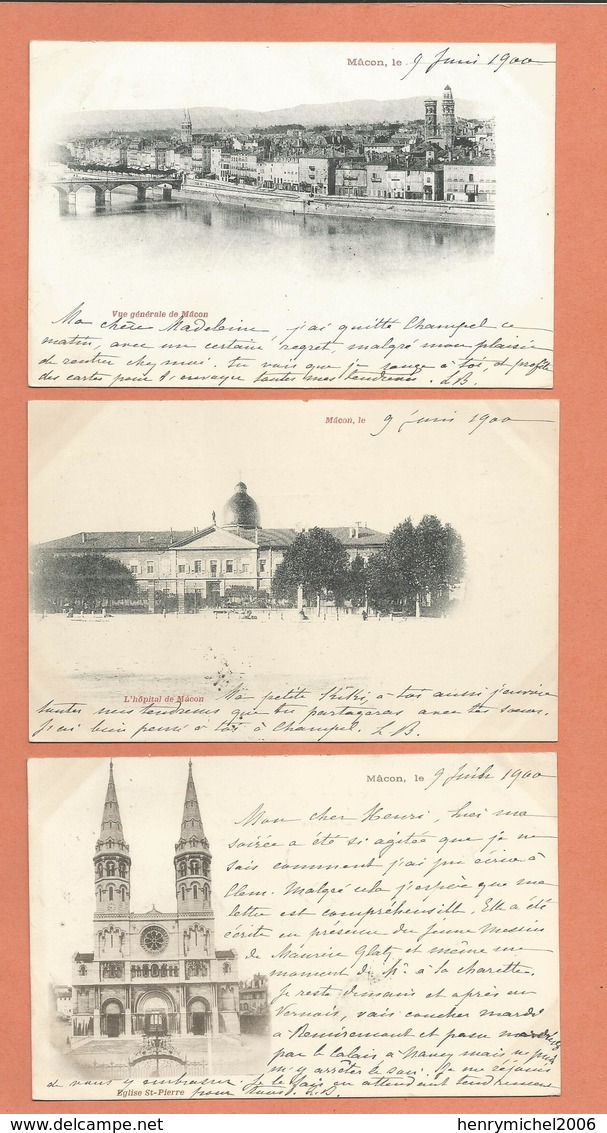 Mâcon, le 9 Juin 1900
Vue générale de Mâcon
Ma chère Madeleine, j'ai quitté Champel ce
matin, avec un certain regret, malgré mon plaisir
de rentrer chez moi. tu vois que je songe à toi, et profite
des cartes pour t'envoyer toutes mes tendresses. L.B.
Mâcon, le 9 juin 1900
L'hôpital de Mâcon
Ma petite à toi aussi j'envoie
toutes mes tendresses que tu partageras avec tes soeurs.
J'ai bien pensé à toi à Champel. L.B.
Mâcon, le 9 Juin 1900
Mon cher Henri, hier ma
soirée a été si agitée que je ne
sais comment j'ai pu écrire à
Clem. Malgré cela j'espère que ma
lettre est compréhensible. Elle a été
écrite en présence du jeune
de Maurice et même une
moment de à la
Je reste demain et après en
vais coucher mardi
à Remiremont et passe
par le à Nancy mais ne puis
m'y arrêter le soir. Je me réjouis
de vous y embrasser. Je le fais en attendant tendrement
Eglise St-Pierre pour tous. L.B.
henrymichel2006